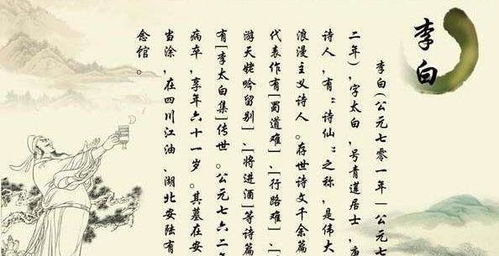 李白
李白(公元七零一年—公元七
二年),字太白,号青莲居士,唐
诗人,有“诗仙”之称,是伟大
浪漫主义诗人。存世诗文千余篇
代表作有[蜀道难]、[行路难]、
游天姥吟留别]、[将进酒]等诗篇
有[李太白集]传世。公元七六二年
病卒,享年六十一岁。其墓在安
当涂,在四川江油、湖北安陆有
念馆。